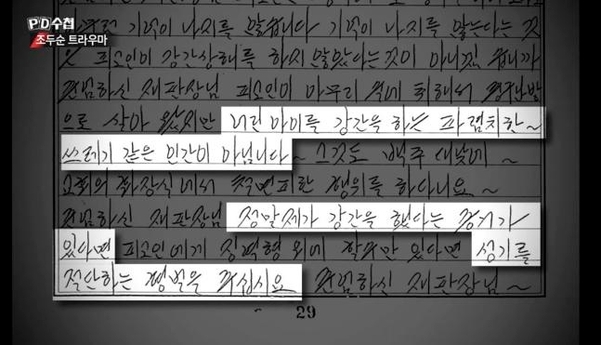 PD수첩
조두순 트라우마
기억이 나지를 않습니다 기억이 나지를 않는다는 것
피고인이 강간상해를 하지 않았다는 것이 아니겠습니까
현명하신 재판장님 피고인이 아무리 술에 취해서
으로 살아 왔지만 어린아이를 강간을 하는 파렴치한~
쓰레기 같은 인간이 아닙니다~ 그것도 백주 대낮에~
교회의 화장실에서 철면피한 행위를 하다니요~
현명하신 재판장님 정말 제가 강간을 했다는 증거가
있다면 피고인에게 징역형 외에 할 수만 있다면 성기를
절단하는 형벌을 주십시요 현명하신 재판장님~
29